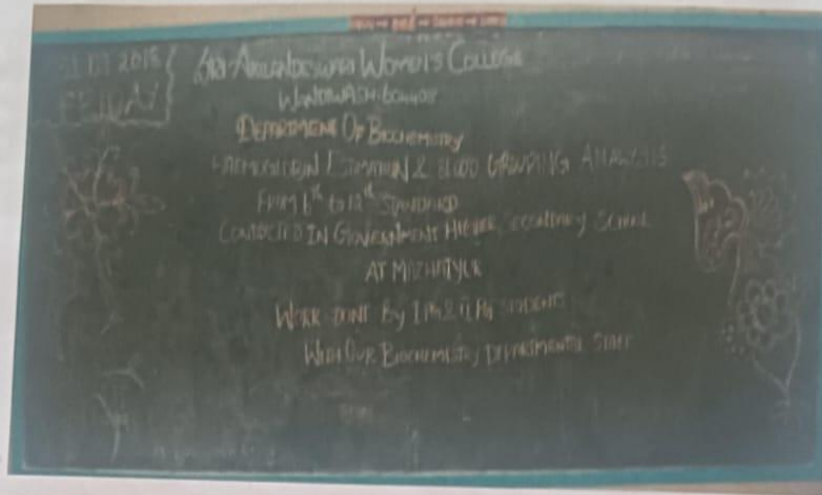 2018
SRI AKILANDESWARI WOMEN'S COLLEGE
WANDIWASH-604408
DEPARTMENT OF BIOCHEMISTRY
HAEMOGLOBIN ESTIMATION & BLOOD GROUPING ANALYSIS
FROM 6th to 12th STANDARD
CONDUCTED IN GOVERNMENT HIGHER SECONDARY SCHOOL
AT MAZHAIYUR
WORK DONE By I PG & II PG STUDENTS
WITH OUR BIOCHEMISTRY DEPARTMENTAL STAFF